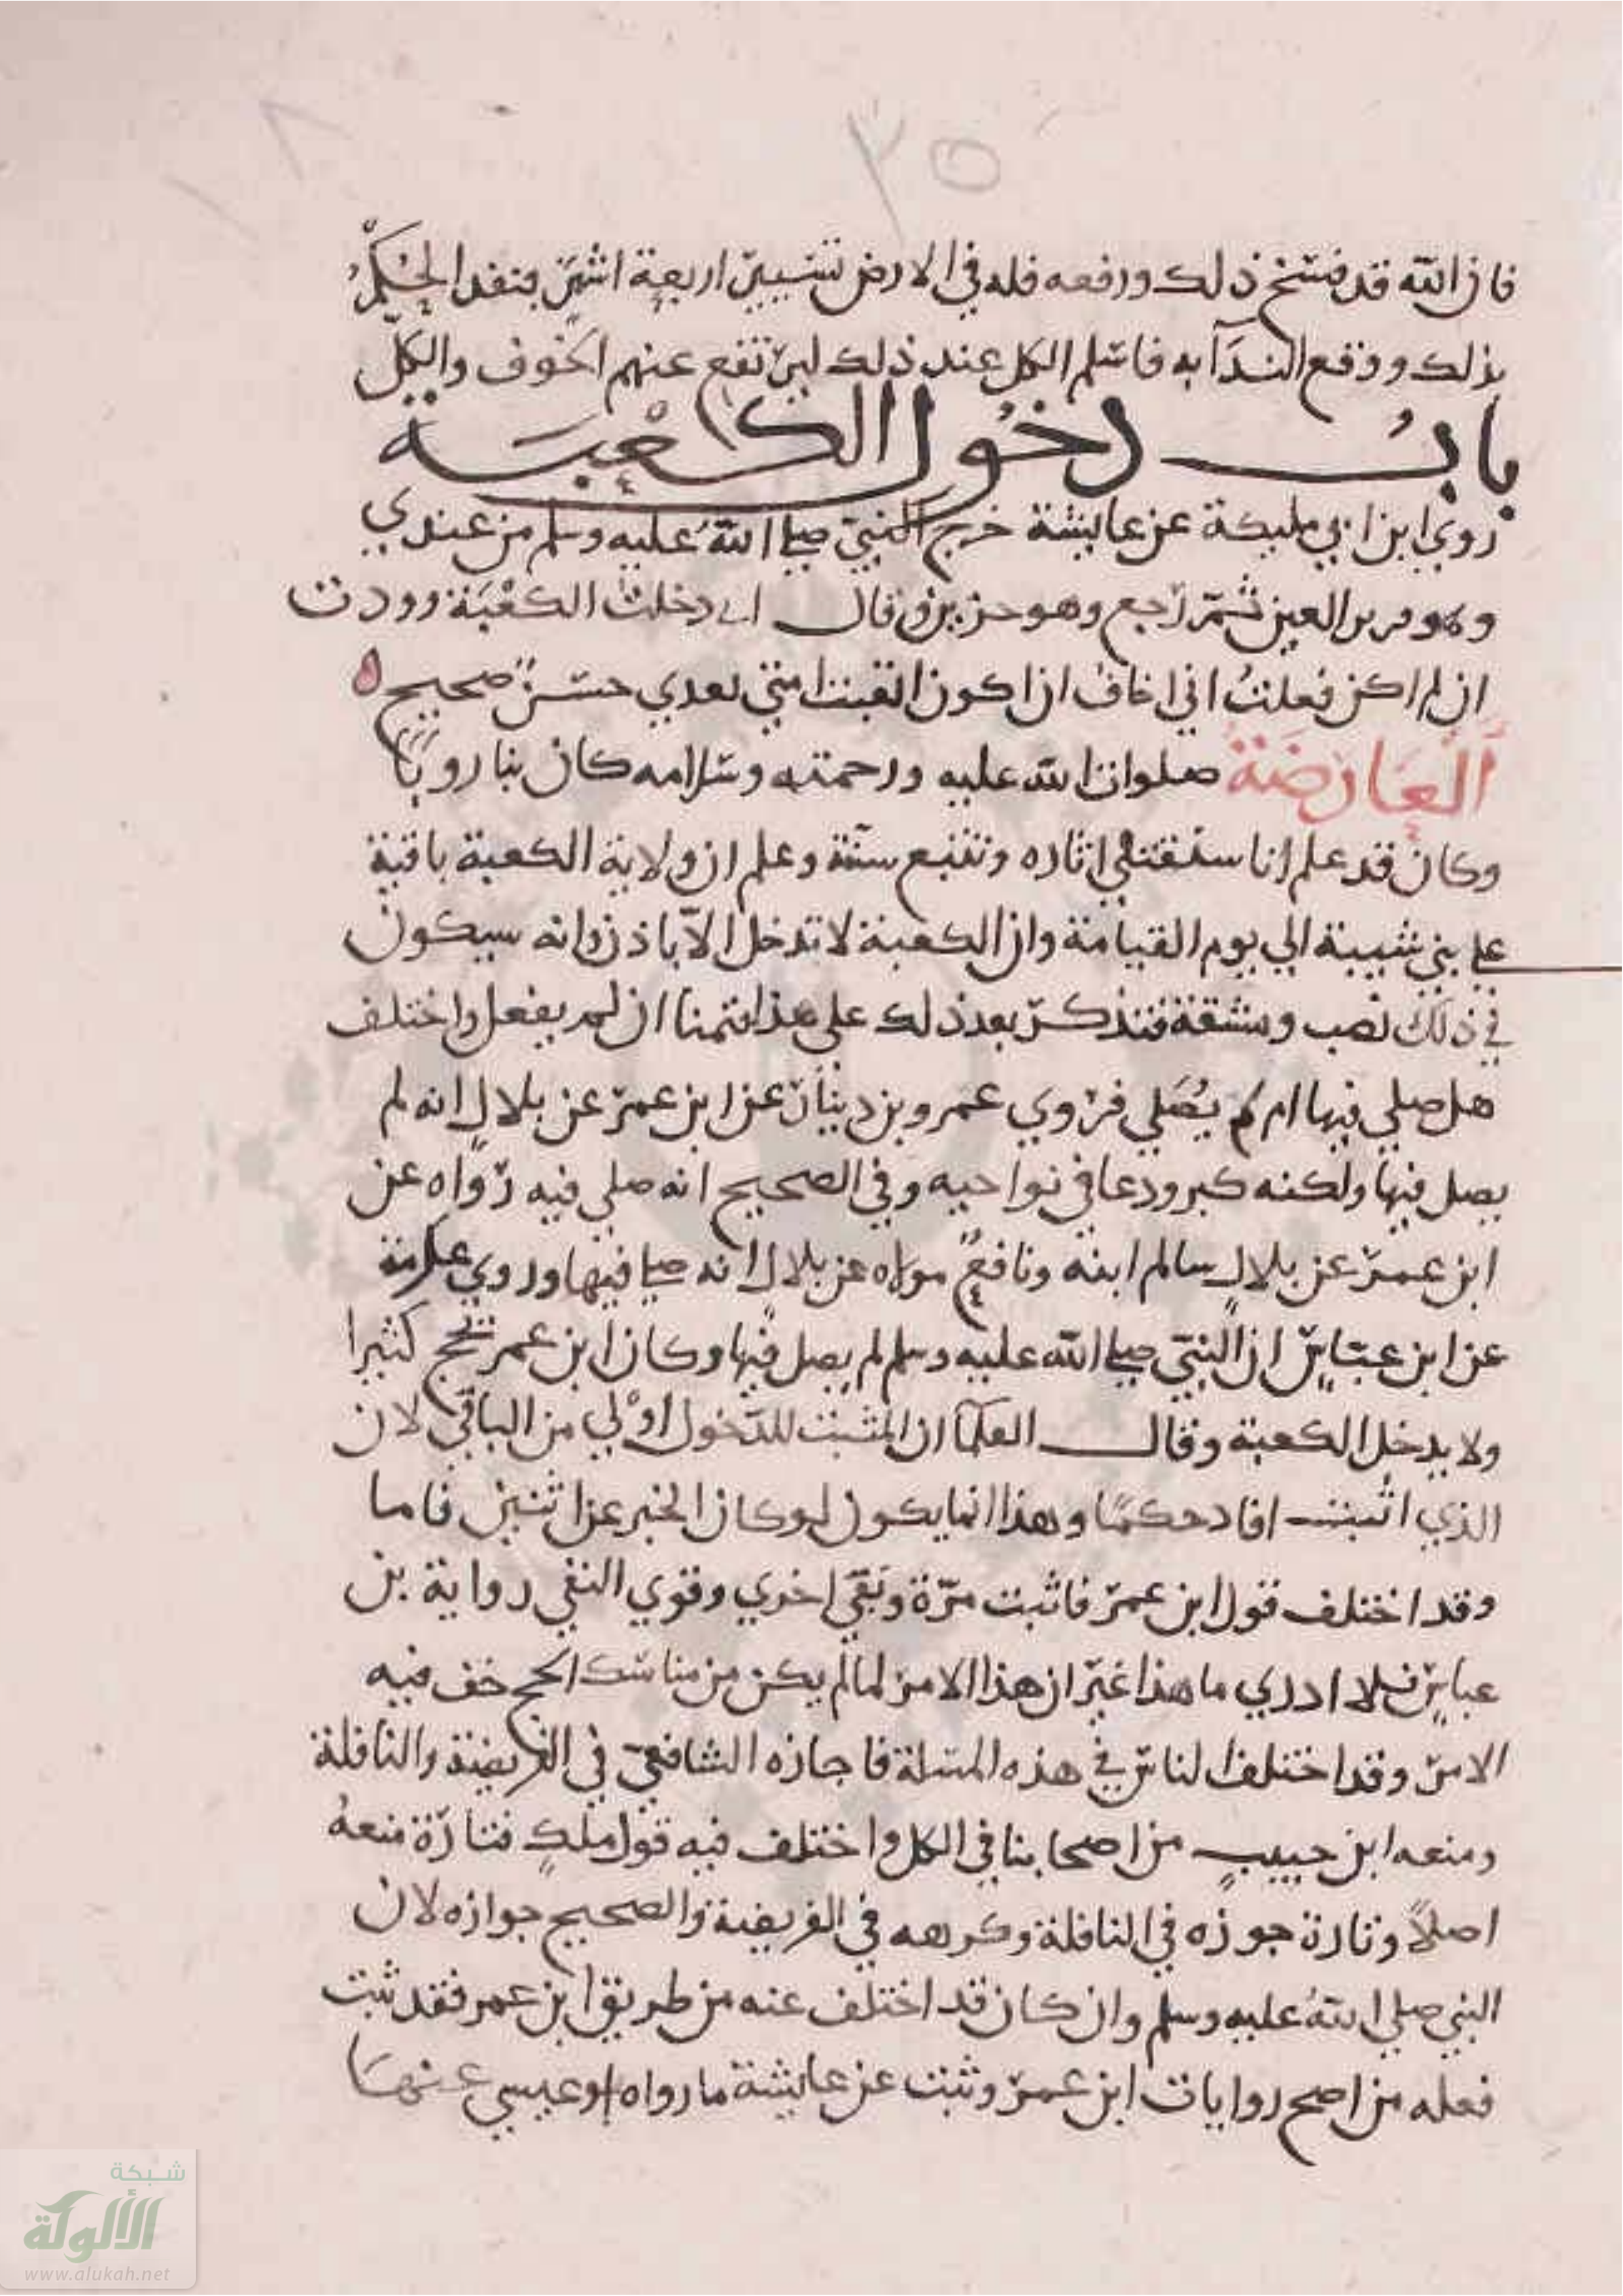 ٢٥
فان الله قد فسخ ذلك ورفعه فله في الارض تسيير اربعة اشهر فنفد الحكم
بذلك ووقع الندآ به فاسلم الكل عند ذلك ليرتفع عنهم الخوف والكلّ
بابُ دخُول الكعْبَة
روي ابن ابي مليكة عن عايشة خرج النبيّ صلى اللهُ عليه وسلم من عندي
وهو قرير العين ثمّ رجع وهو حزين وقال اني دخلت الكعْبَة ووددت
ان لم اكن فعلتُ اني اخافُ ان اكون اتعبت امتي بعدي حسنٌ صحيح ه
العَارضَة صلوات الله عليه ورحمته وسلامه كان بنا روبًا
وكان قد علم انا سنقتفي اثاره ونتبع سنته وعلم ان ولاية الكعبة باقية
على بني شيبة الي يوم القيامة وان الكعبة لا تدخل الاّ باذن وانه سيكون
في ذلك نصب ومشقة فتذكر بعد ذلك على هذا فتمنا ان لم يفعل واختلف
هل صلي فيها ام لم يُصَلي فروي عمرو بن دينار عن ابن عمر عن بلالٍ انه لم
يصل فيها ولكنه كبر ودعا في نواحيه وفي الصحيح انه صلي فيه رواه عن
ابن عمر عن بلالٍ سالم ابنه ونافعٌ مولاه عن بلالٍ انه صلى فيها وروي عكرمة
عن ابن عبّاسٍ ان النبيّ صلى الله عليه وسلم لم يصل فيها وكان ابن عمر يحج كثيرا
ولا يدخل الكعبة وقال العلمآ ان المثبت للدّخول اوْلي من الباقي لان
الذي اثبت افاد حكمًا وهذا انما يكون لو كان الخبر عن اثنين فاما
وقد اختلف قول ابن عمر فاثبت مرّة ونفي اخري وقوي النفي رواية بن
عباسٍ فلا ادري ما هذا غير ان هذا الامر لما لم يكن من مناسك الحج خف فيه
الامر وقد اختلف الناس في هذه المسلة فاجازه الشافعيّ في الفريضة والنافلة
ومنعه ابن حبيبٍ من اصحابنا في الكل واختلف فيه قول ملكٍ فتارة منعهُ
اصلاً وتارة جوزه في النافلة وكرهه في الفريضة والصحيح جوازه لان
النبي صلي اللهُ عليه وسلم وان كان قد اختلف عنه من طريق ابن عمر فقد ثبت
فعله من اصح روايات ابن عمر وثبت عن عايشة ما رواه ابو عيسي عنها
شبكة
الألوكة
www.alukah.net